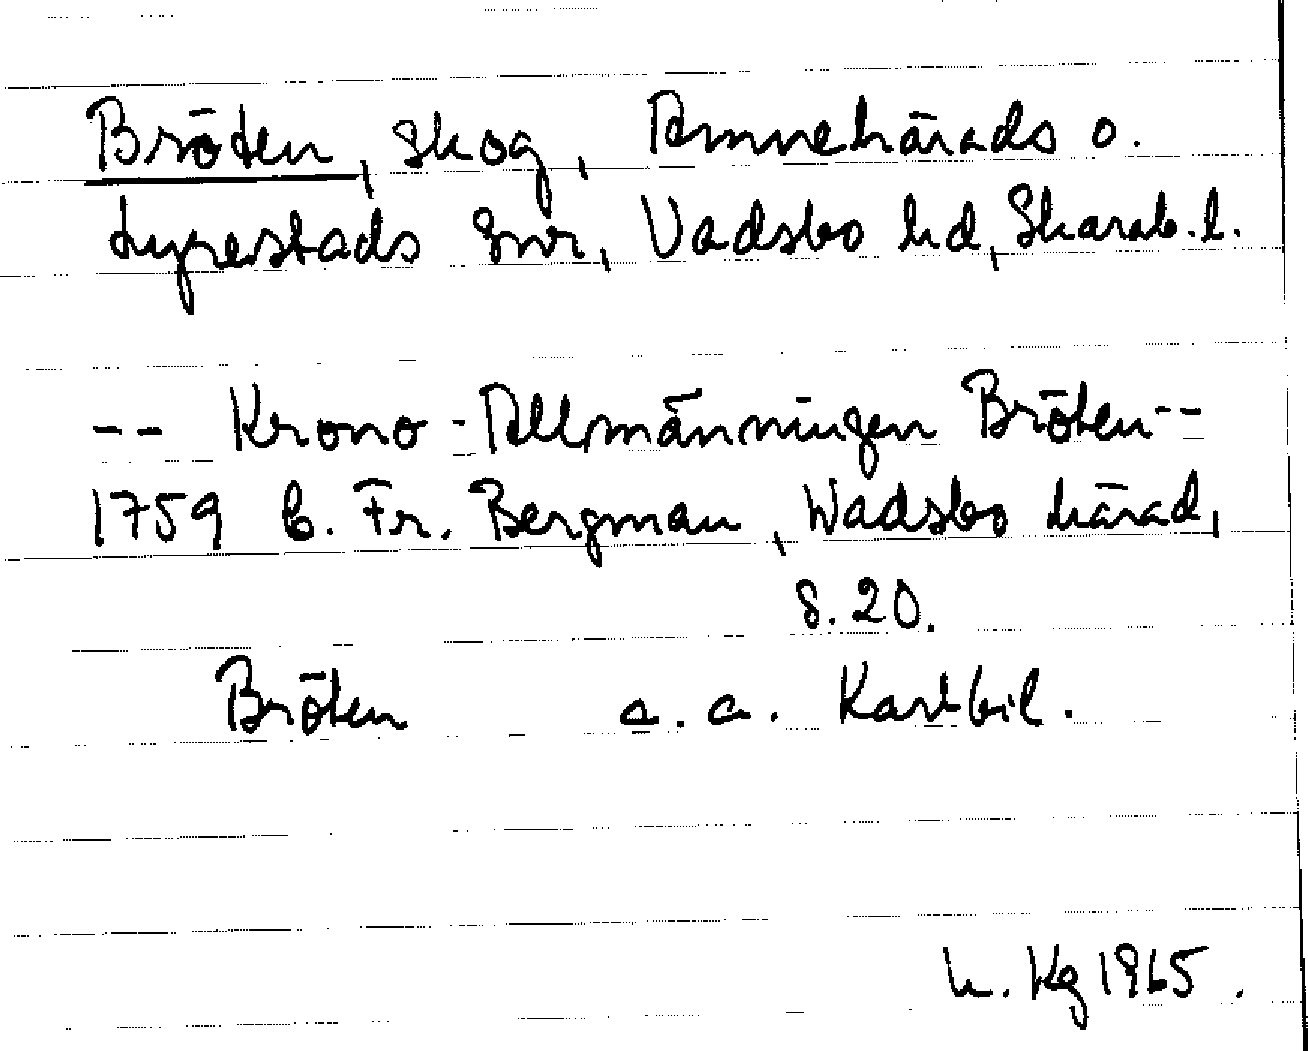 Bröten, skog, Amnehärads o.
Lyrestads snr, Vadsbo hd, Skarab. l.
-- Krono-Allmänningen Bröten--
1759 C. Fr. Bergman, Wadsbo härad,
s. 20.
Bröten a. a. Kartbil.
L. Kg 1965.